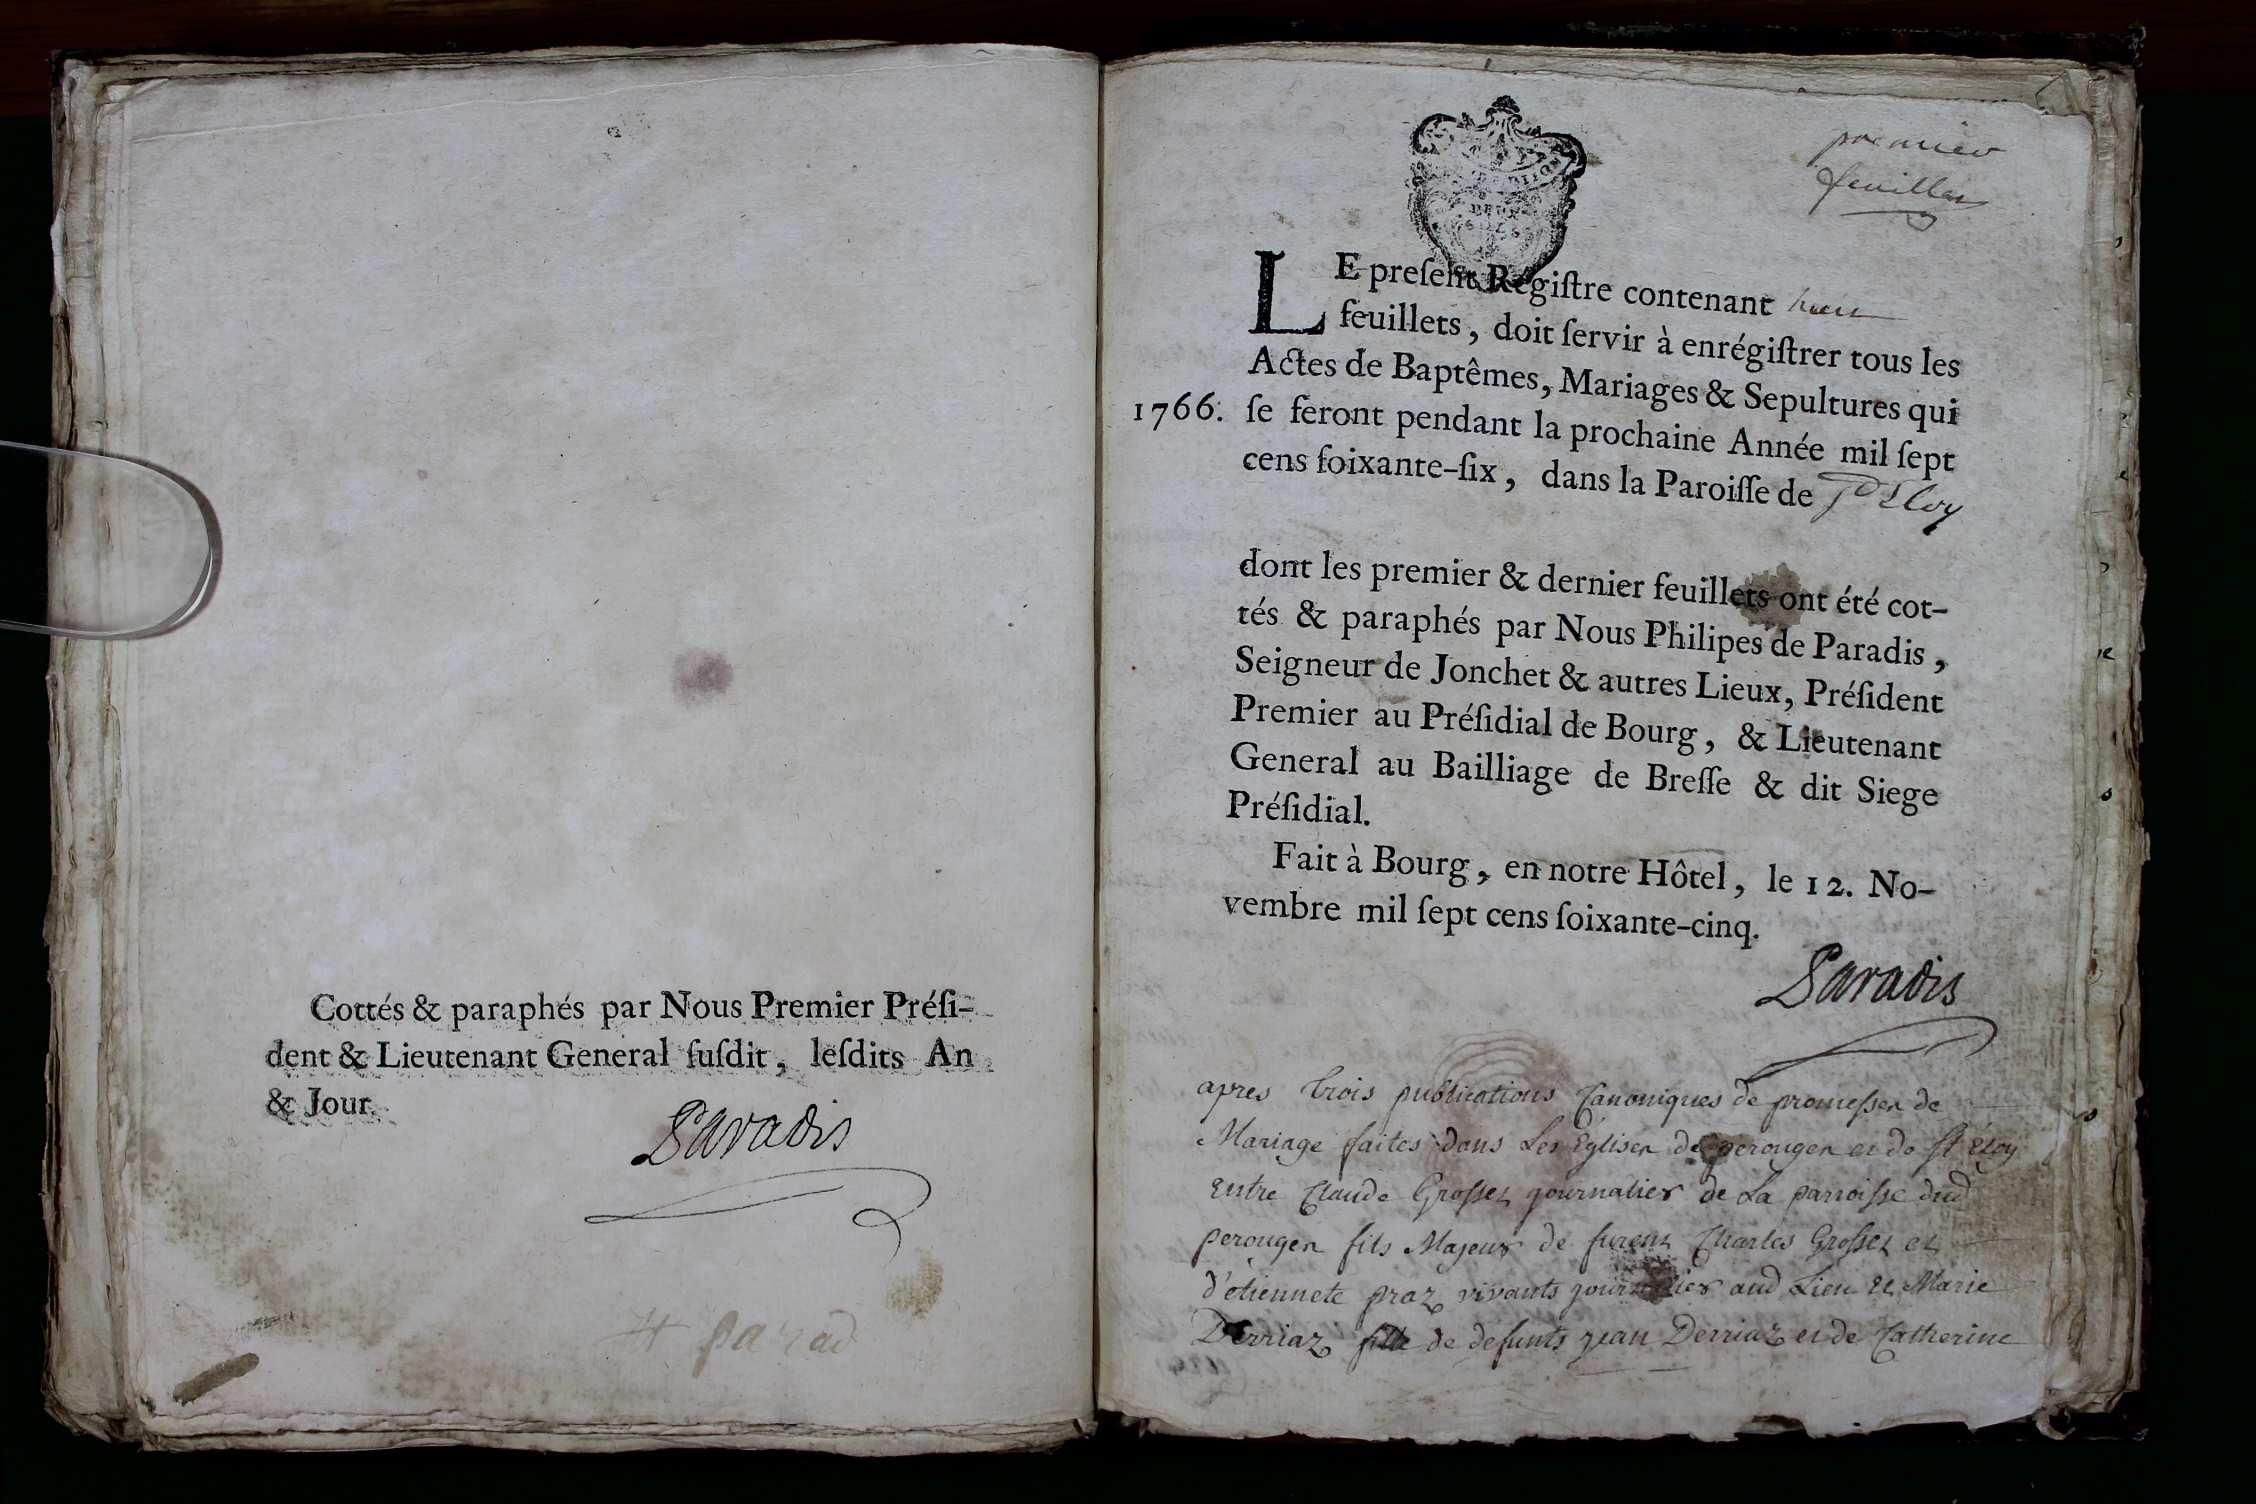 Cottés & paraphés par Nous Premier Préſi-
dent & Lieutenant General ſuſdit, leſdits An
& Jour.
Paradis
parad
premier
feuillet
LE preſent Régiſtre contenant
feuillets, doit ſervir à enrégiſtrer tous les
Actes de Baptêmes, Mariages & Sepultures qui
1766. ſe feront pendant la prochaine Année mil ſept
cens ſoixante-ſix, dans la Paroiſſe de St Eloy
dont les premier & dernier feuillets ont été cot-
tés & paraphés par Nous Philipes de Paradis,
Seigneur de Jonchet & autres Lieux, Préſident
Premier au Préſidial de Bourg, & Lieutenant
General au Bailliage de Breſſe & dit Siege
Préſidial.
Fait à Bourg, en notre Hôtel, le 12. No-
vembre mil ſept cens ſoixante-cinq.
Paradis
apres trois publications Canoniques de promesses de
Mariage faites dans Les Eglises de perouges et de st Eloy
entre Claude Grosset journalier de La parroisse dud
perouges fils Majeur de furent Charles Grosset et
d'etiennete praz vivants journalier aud Lieu et Marie
Derriaz fille de defunts jean Derriaz et de Catherine